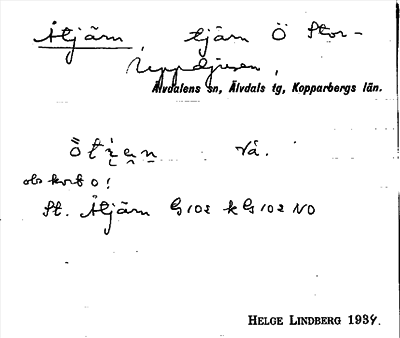 Åtjärn, tjärn Ö Stor-
Uppdjusen,
Älvdalens sn, Älvdals tg, Kopparbergs län.
vå.
obs kort o!
St. Åtjärn G102 k G102 NO
HELGE LINDBERG 1934.